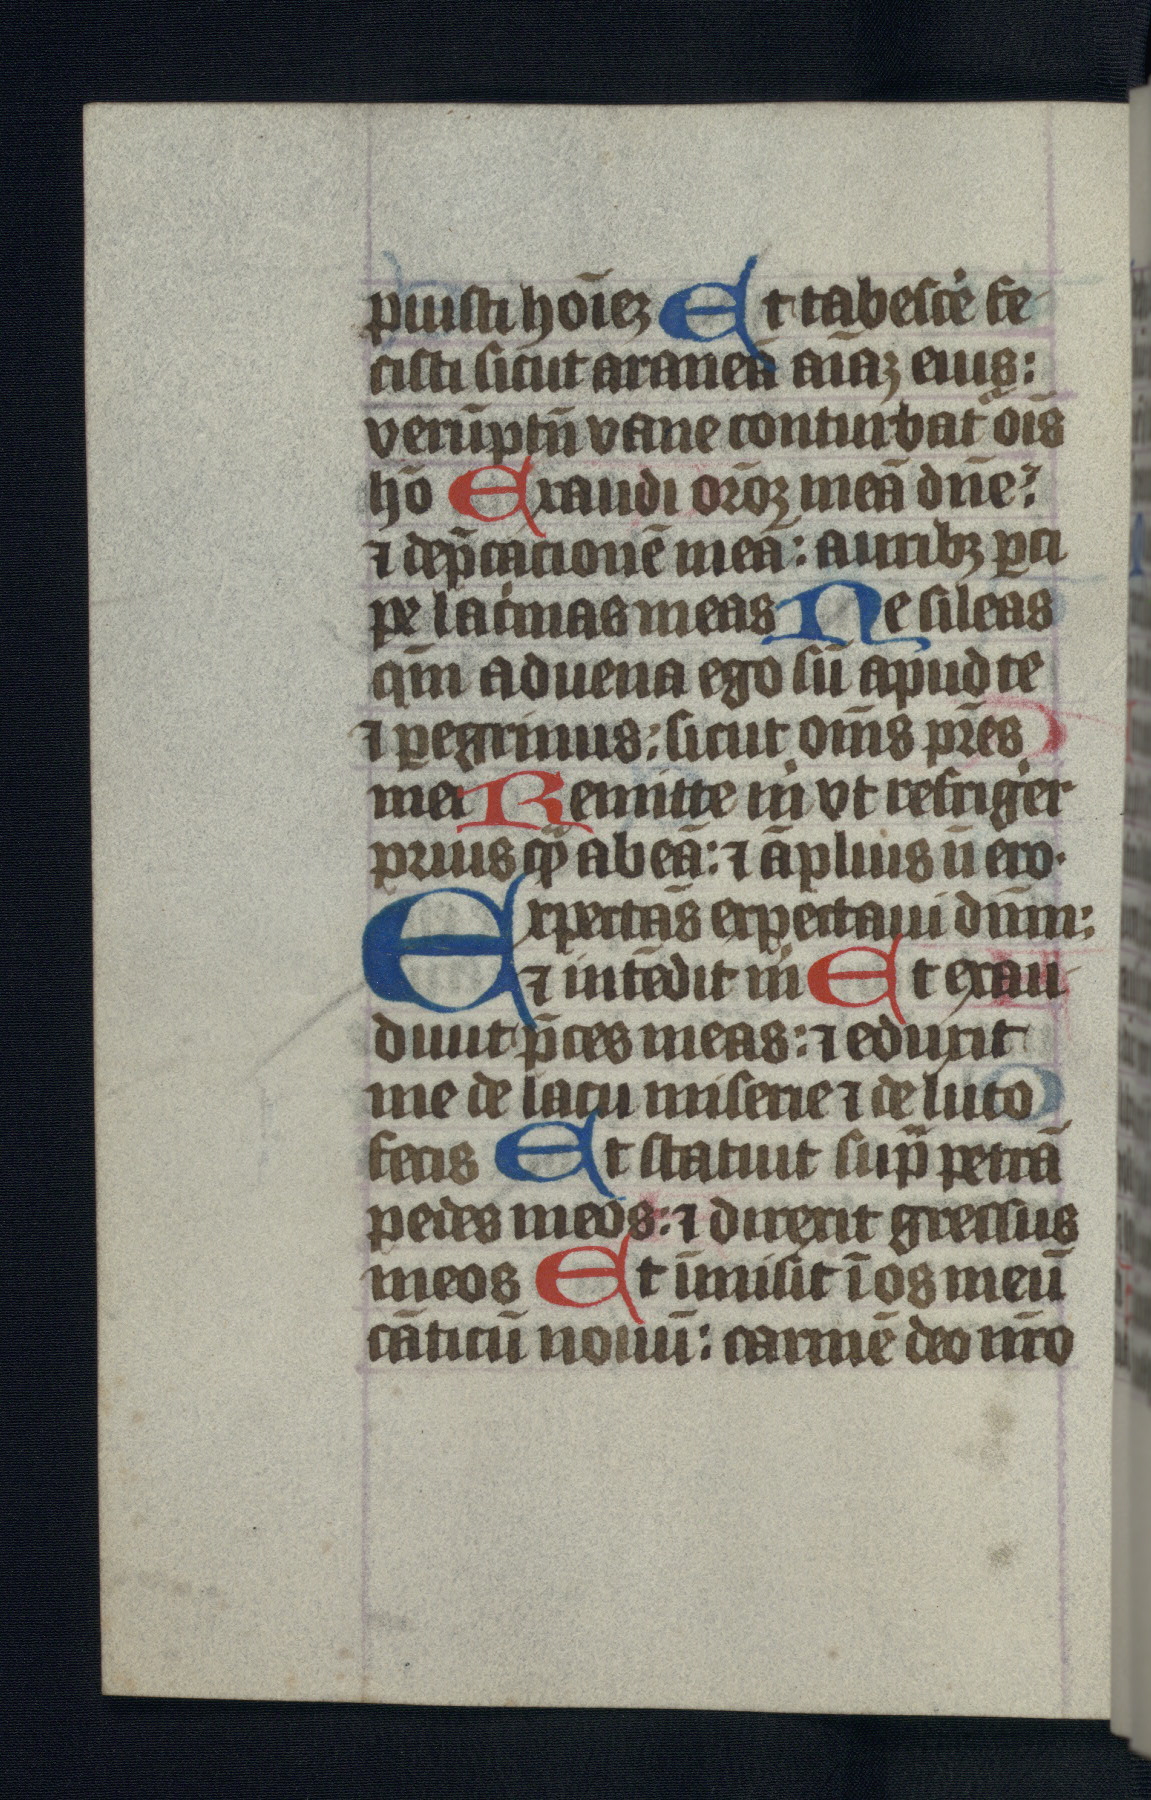 puisti hoı̄eꝫ Et tabesce̛ fe
cisti sicut araneā aı̄aꝫ eius:
verūptn̄ vane conturbat᷑ oı̄s
hō Exaudi orōꝫ meā dn̄e:
⁊ dep̄cacionē meā: auribꝫ ꝑci
pe lac̛mas meas Ne sileas
qm̄ aduena ego sū apud te
⁊ ꝑegrinus: sicut om̄s pr̄es
mei Remitte m̛ vt refrige̛r
prius qͣ̄ abeā: ⁊ āplius n̄ ero.
Expectās expectaui dn̄m:
⁊ intēdit m̛ Et exau
diuit p̄ces meas: ⁊ eduxit
me de lacu miserie ⁊ de luto
fecis Et statuit sup̄ petrā
pedes meos: ⁊ direxit gressus
meos Et īmisit ī os meū
cāticū nouū: carmē deo nr̄o